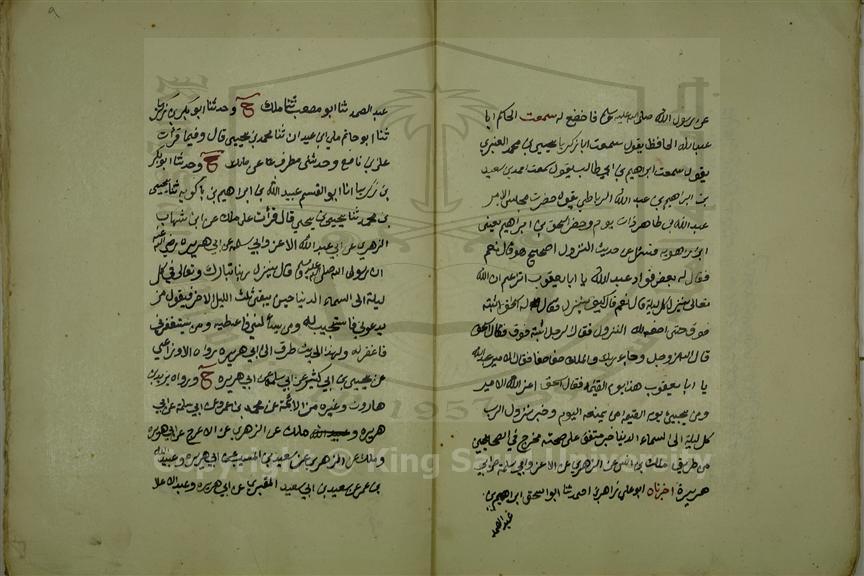 عن رسول الله صلى الله عليه وسلم فاخضع له سمعت الحاكم ابا
عبد الله الحافظ يقول سمعت ابا زكريا يحيى بن محمد العنبري
يقول سمعت ابراهيم بن ابي طالب يقول سمعت احمد بن سعيد
بن ابراهيم بن عبد الله الرباطي يقول حضرت مجلس الامير
عبد الله بن طاهر ذات يوم وحضر اسحق بن ابراهيم يعني
ابن راهويه فسئل عن حديث النزول اصحيح هو قال نعم
فقال له بعض قواد عبد الله يا ابا يعقوب اتزعم ان الله
تعالى ينزل كل ليلة قال نعم قال كيف ينزل فقال له اسحق اثبته
فوق حتى اصف لك النزول فقال الرجل اثبته فوق فقال اسحق
قال الله عز وجل وجاء ربك والملك صفا صفا فقال الامير عبد الله
يا ابا يعقوب هذا يوم القيمة فقال اسحق اعز الله الامير
ومن يجيئ يوم القيمة من يمنعه اليوم وخبر نزول الرب
كل ليلة الى السماء الدنيا خبر متفق على صحته مخرج في الصحيحين
من طريق ملك بن انس عن الزهري عن الاغر وابي سلمة عن ابي
هريرة اخبرناه ابو علي زاهر بن احمد ثنا ابو اسحق ابراهيم بن
عبد الصمد
٩
عبد الصمد ثنا ابو مصعب ثنا ملك ح وحدثنا ابو بكر بن زكريا
ثنا ابو حاتم مكي بن عبدان ثنا محمد بن يحيى قال وفيما قرات
على بن نافع وحدثني مطرف عن ملك ح وحدثنا ابو بكر
بن زكريا انا ابو القسم عبيد الله بن ابراهيم بن باكويه ثنا يحيى
بن محمد ثنا يحيى بن يحيى قال قرأت على ملك عن ابن شهاب
الزهري عن ابي عبد الله الاغر وابي سلمة عن ابي هريرة رضي الله عنه
ان رسول الله صلى الله عليه وسلم قال ينزل ربنا تبارك وتعالى في كل
ليلة الى السماء الدنيا حين يبقى ثلث الليل الاخر فيقول من
يدعوني فاستجيب له ومن يسألني فاعطيه ومن يستغفرني
فاغفر له ولهذا الحديث طرق الى ابي هريرة رواه الاوزاعي
عن يحيى بن ابي كثير عن ابي سلمة عن ابي هريرة ح ورواه يزيد بن
هارون وغيره من الائمة عن محمد بن عمرو عن ابي سلمة عن ابي
هريرة وملك عن الزهري عن الاعرج عن ابي هريرة
وملك عن الزهري عن سعيد بن المسيب عن ابي هريرة وعبيد الله
بن عمر عن سعيد بن ابي سعيد المقبري عن ابي هريرة وعبد الاعلا
1957
Copyright © King Saud University